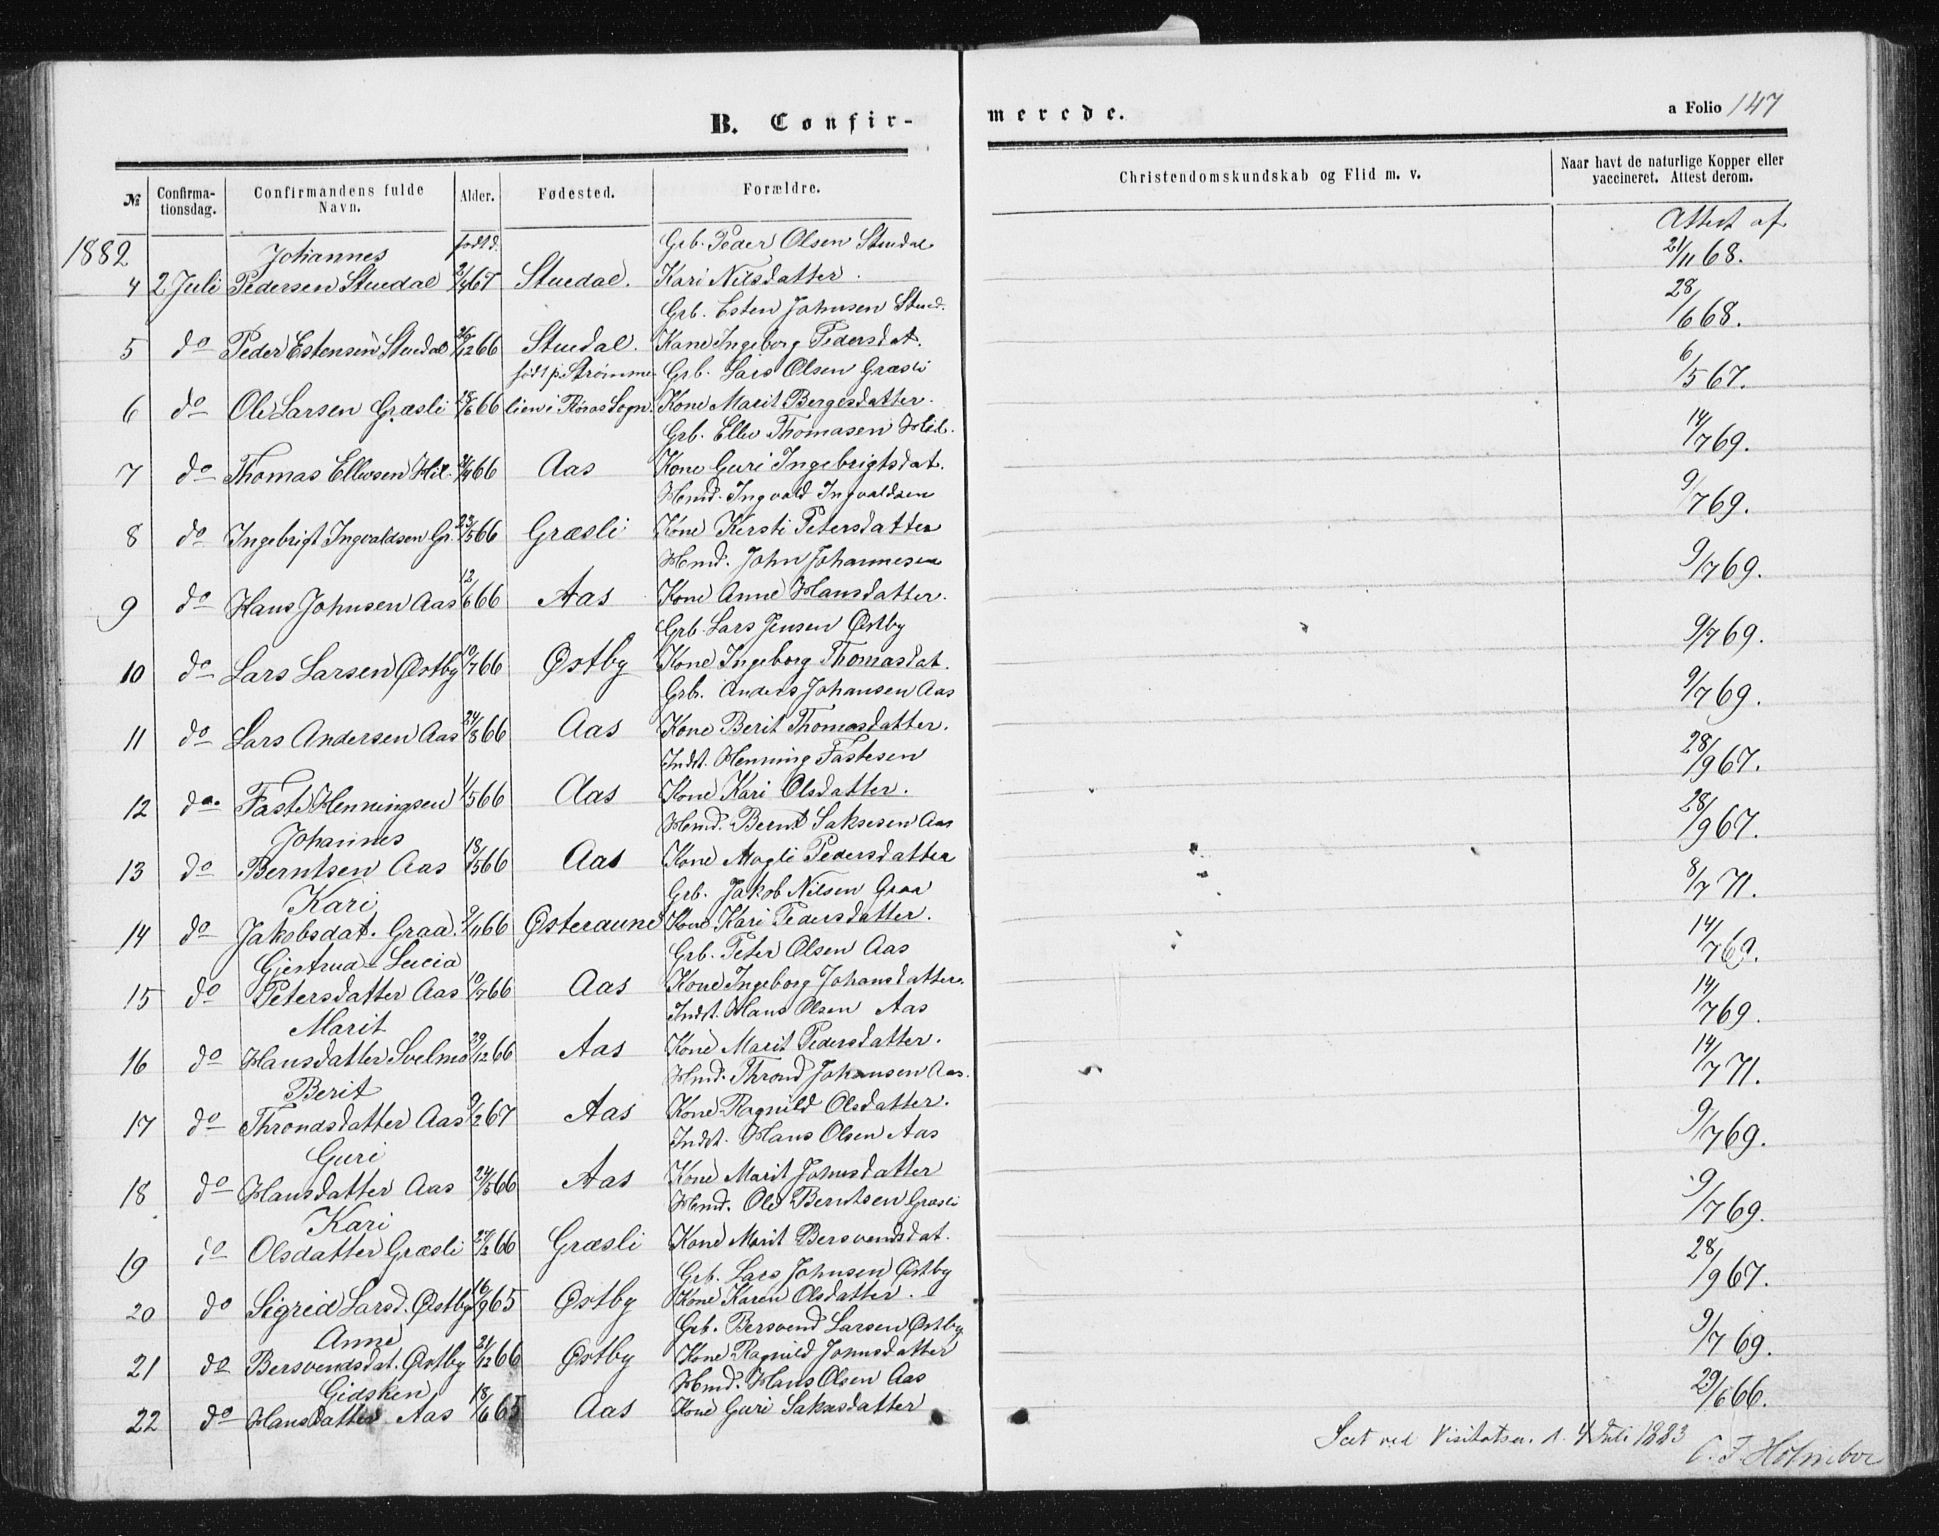 B. Confir-
merede.
a Folio 147
№
Confirma-
tionsdag.
Confirmandens fulde
Navn.
Alder.
Fødested.
Forældre.
Christendomskundskab og Flid m. v.
Naar havt de naturlige Kopper eller
vaccineret. Attest derom.
1882 Johannes født d. Grb. Peder Olsen Stuedal Attest af
4 2 Juli Pedersen Stuedal 2/4 67 Stuedal. Kari Nilsdatter. 21/11 68.
Grb. Esten Johnsen Stued.
5 do Peder Estensen Stuedal 26/12 66 Stuedal. Kone Ingeborg Pedersdat. 28/6 68.
født på Strømme- Grb. Lars Olsen Græsli
6 do Ole Larsen Græsli 28/6 66 lien i Røros Sogn. Kone Marit Bergesdatter. 6/5 67.
Grb. Ellev Thomasen Hil.
7 do Thomas Ellevsen Hil. 2/4 66 Aas Kone Guri Ingebrigtsdat. 14/7 69.
Hmd. Ingvald Ingvaldsen
8 do Ingebrigt Ingvaldsen Gr. 23/5 66 Græsli Kone Kirsti Petersdatter 9/7 69.
Hmd. John Johannesen
9 do Hans Johnsen Aas 12/6 66 Aas Kone Anne Hansdatter. 9/7 69.
Grb. Lars Jensen Østby
10 do Lars Larsen Østby 10/7 66 Østby Kone Ingeborg Thomasdat. 9/7 69.
Grb. Anders Johansen Aas
11 do Lars Andersen Aas 24/8 66 Aas Kone Berit Thomasdatter. 9/7 69.
Indst. Henning Fastesen
12 do Faste Henningsen 1/5 66 Aas Kone Kari Olsdatter. 28/9 67.
Johannes Hmd. Bernt Saksesen Aas
13 do Berntsen Aas 18/5 66 Aas Kone Magli Pedersdatter 28/9 67.
Kari Grb. Jakob Nilsen Graa
14 do Jakobsdat. Graa. 9/11 66 Østeraune Kone Kari Pedersdatter. 8/7 71.
Gjertrud-Lucia Grb. Peter Olsen Aas
15 do Petersdatter Aas 10/7 66 Aas Kone Ingeborg Johansdatter. 14/7 69.
Marit Indst. Hans Olsen Aas
16 do Hansdatter Svelmo 29/12 66 Aas Kone Marit Pedersdatter. 14/7 69.
Berit Hmd. Thrond Johansen Aas.
17 do Throndsdatter Aas 9/2 67 Aas Kone Ragnild Olsdatter. 14/7 71.
Guri Indst. Hans Olsen Aas
18 do Hansdatter Aas 24/5 66 Aas Kone Marit Johnsdatter 9/7 69.
Kari Hmd. Ole Berntsen Græsli
19 do Olsdatter Græsli 27/2 66 Græsli Kone Marit Bersvendsdat. 9/7 69.
Grb. Lars Johnsen Østby
20 do Sigrid Larsd. Østby 16/9 65 Østby Kone Karen Olsdatter. 28/9 67.
Anne Grb. Bersvend Larsen Østby
21 do Bersvendsdat. Østby 24/12 66 Østby Kone Ragnild Johnsdatter 9/7 69.
Gidsken Hmd. Hans Olsen Aas
22 do Hansdatter Aas 18/6 65 Aas Kone Guri Saksesdatter 29/6 66.
Seet ved Visitatsen. d. 4 Juli 1883
C. F. Holmboe